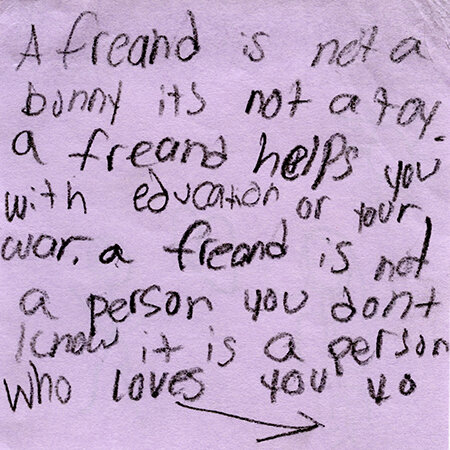 A freand is not a
bunny its not a toy.
a freand helps you
with education or your
war. a freand is not
a person you dont
know it is a person
who loves you yo